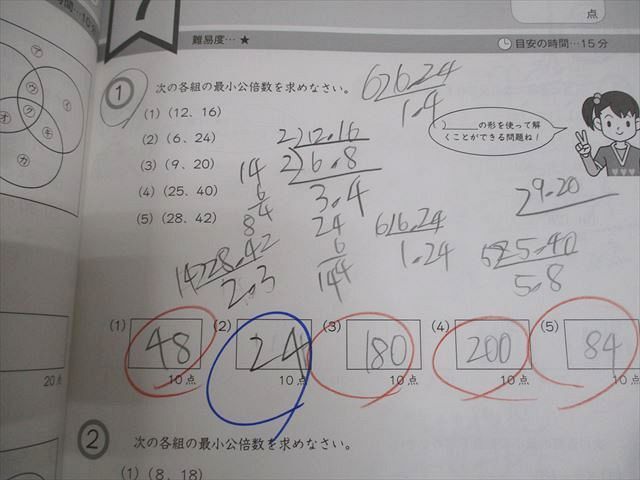 7
点
難易度…★
目安の時間…15分
1 次の各組の最小公倍数を求めなさい。
(1) (12、16)
(2) (6、24)
(3) (9、20)
(4) (25、40)
(5) (28、42)
の形を使って解
くことができる問題ね！
6)6.24
1.4
2)12.16
2)6.8
3.4
14
6
84
24
6
144
6)6.24
1.24
2 9.20
5)25.40
5.8
14)28.42
2.3
(1) 48 10点
(2) 24 10点
(3) 180 10点
(4) 200 10点
(5) 84 10点
ア
ウ
イ
カ
キ
20点
2 次の各組の最小公倍数を求めなさい。
(1) (8、18)